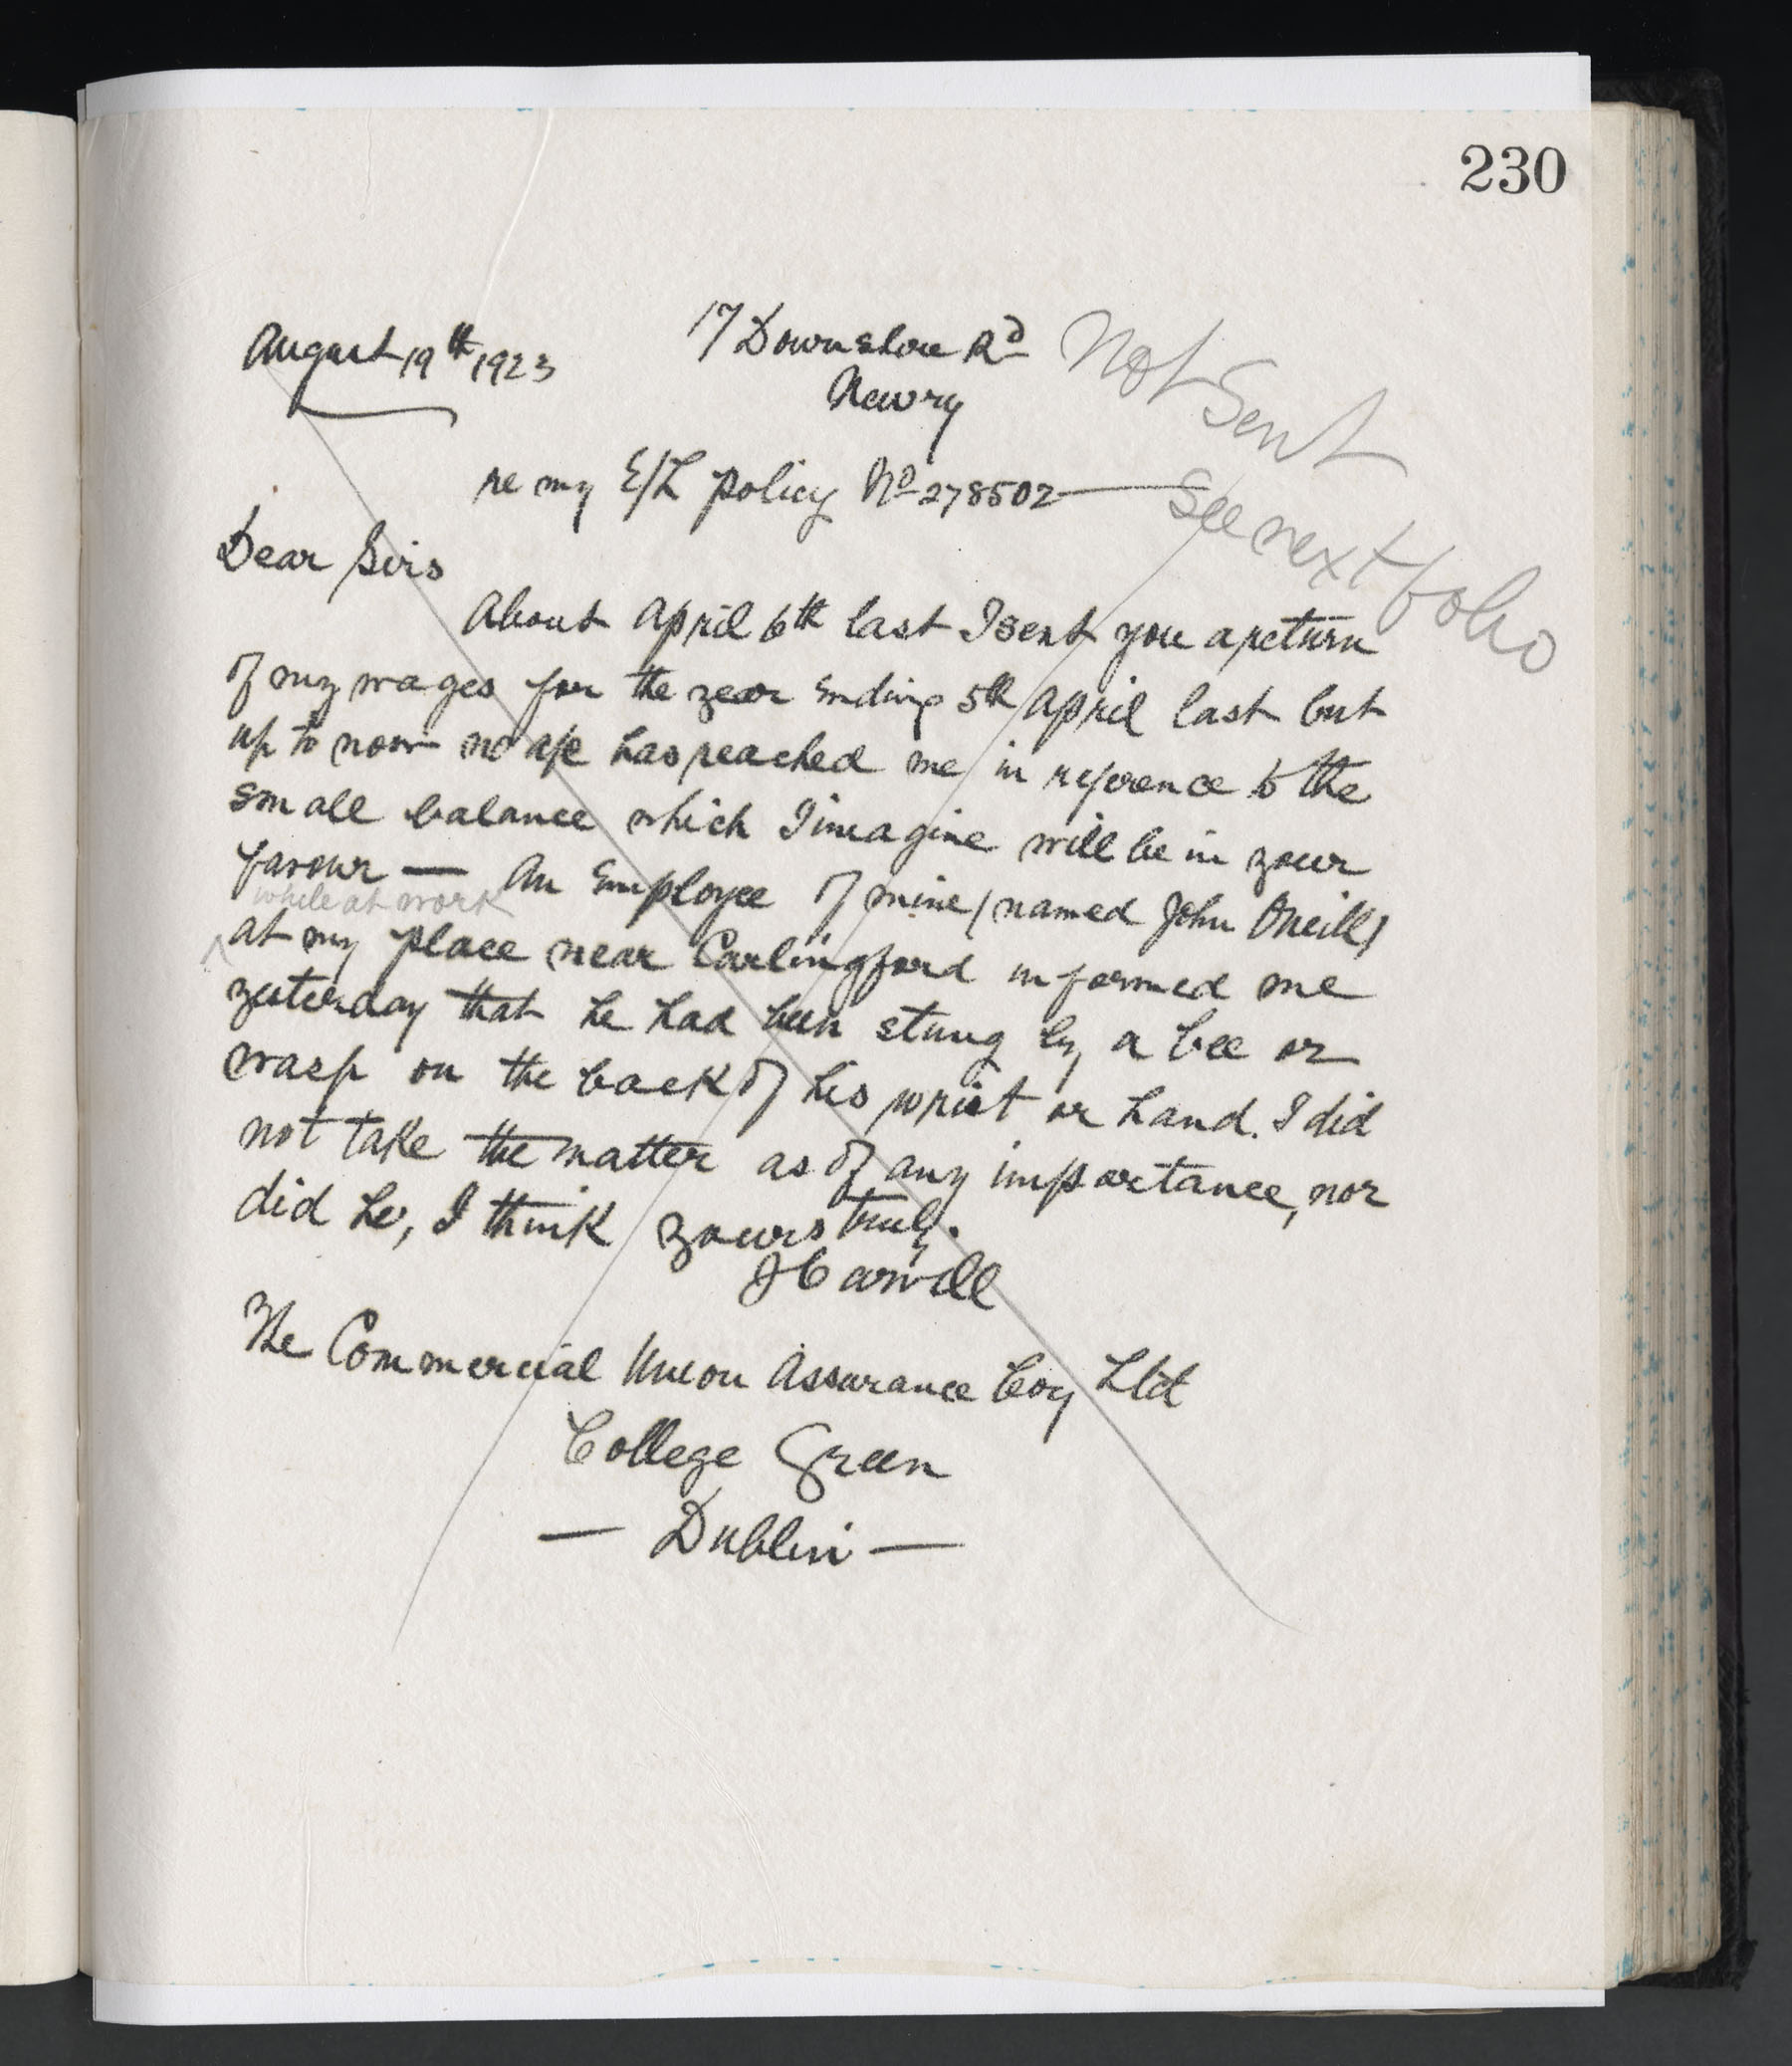 230
August 19th 1923
17 Downshire Rd
Newry
Not Sent
re my E/L policy No 278502
See next folio
Dear Sirs
About April 6th last I sent you a return
of my wages for the year Ending 5th April last but
up to now no a/c has reached me in reference to the
small balance which I imagine will be in your
favour — An Employee of mine (named John Oneill)
while at work
at my place near Carlingford informed me
yesterday that he had been stung by a bee or
wasp on the back of his wrist or hand. I did
not take the matter as of any importance, nor
did he, I think yours truly.
J Carvill
The Commercial Union Assurance Coy Ltd
College Green
— Dublin —